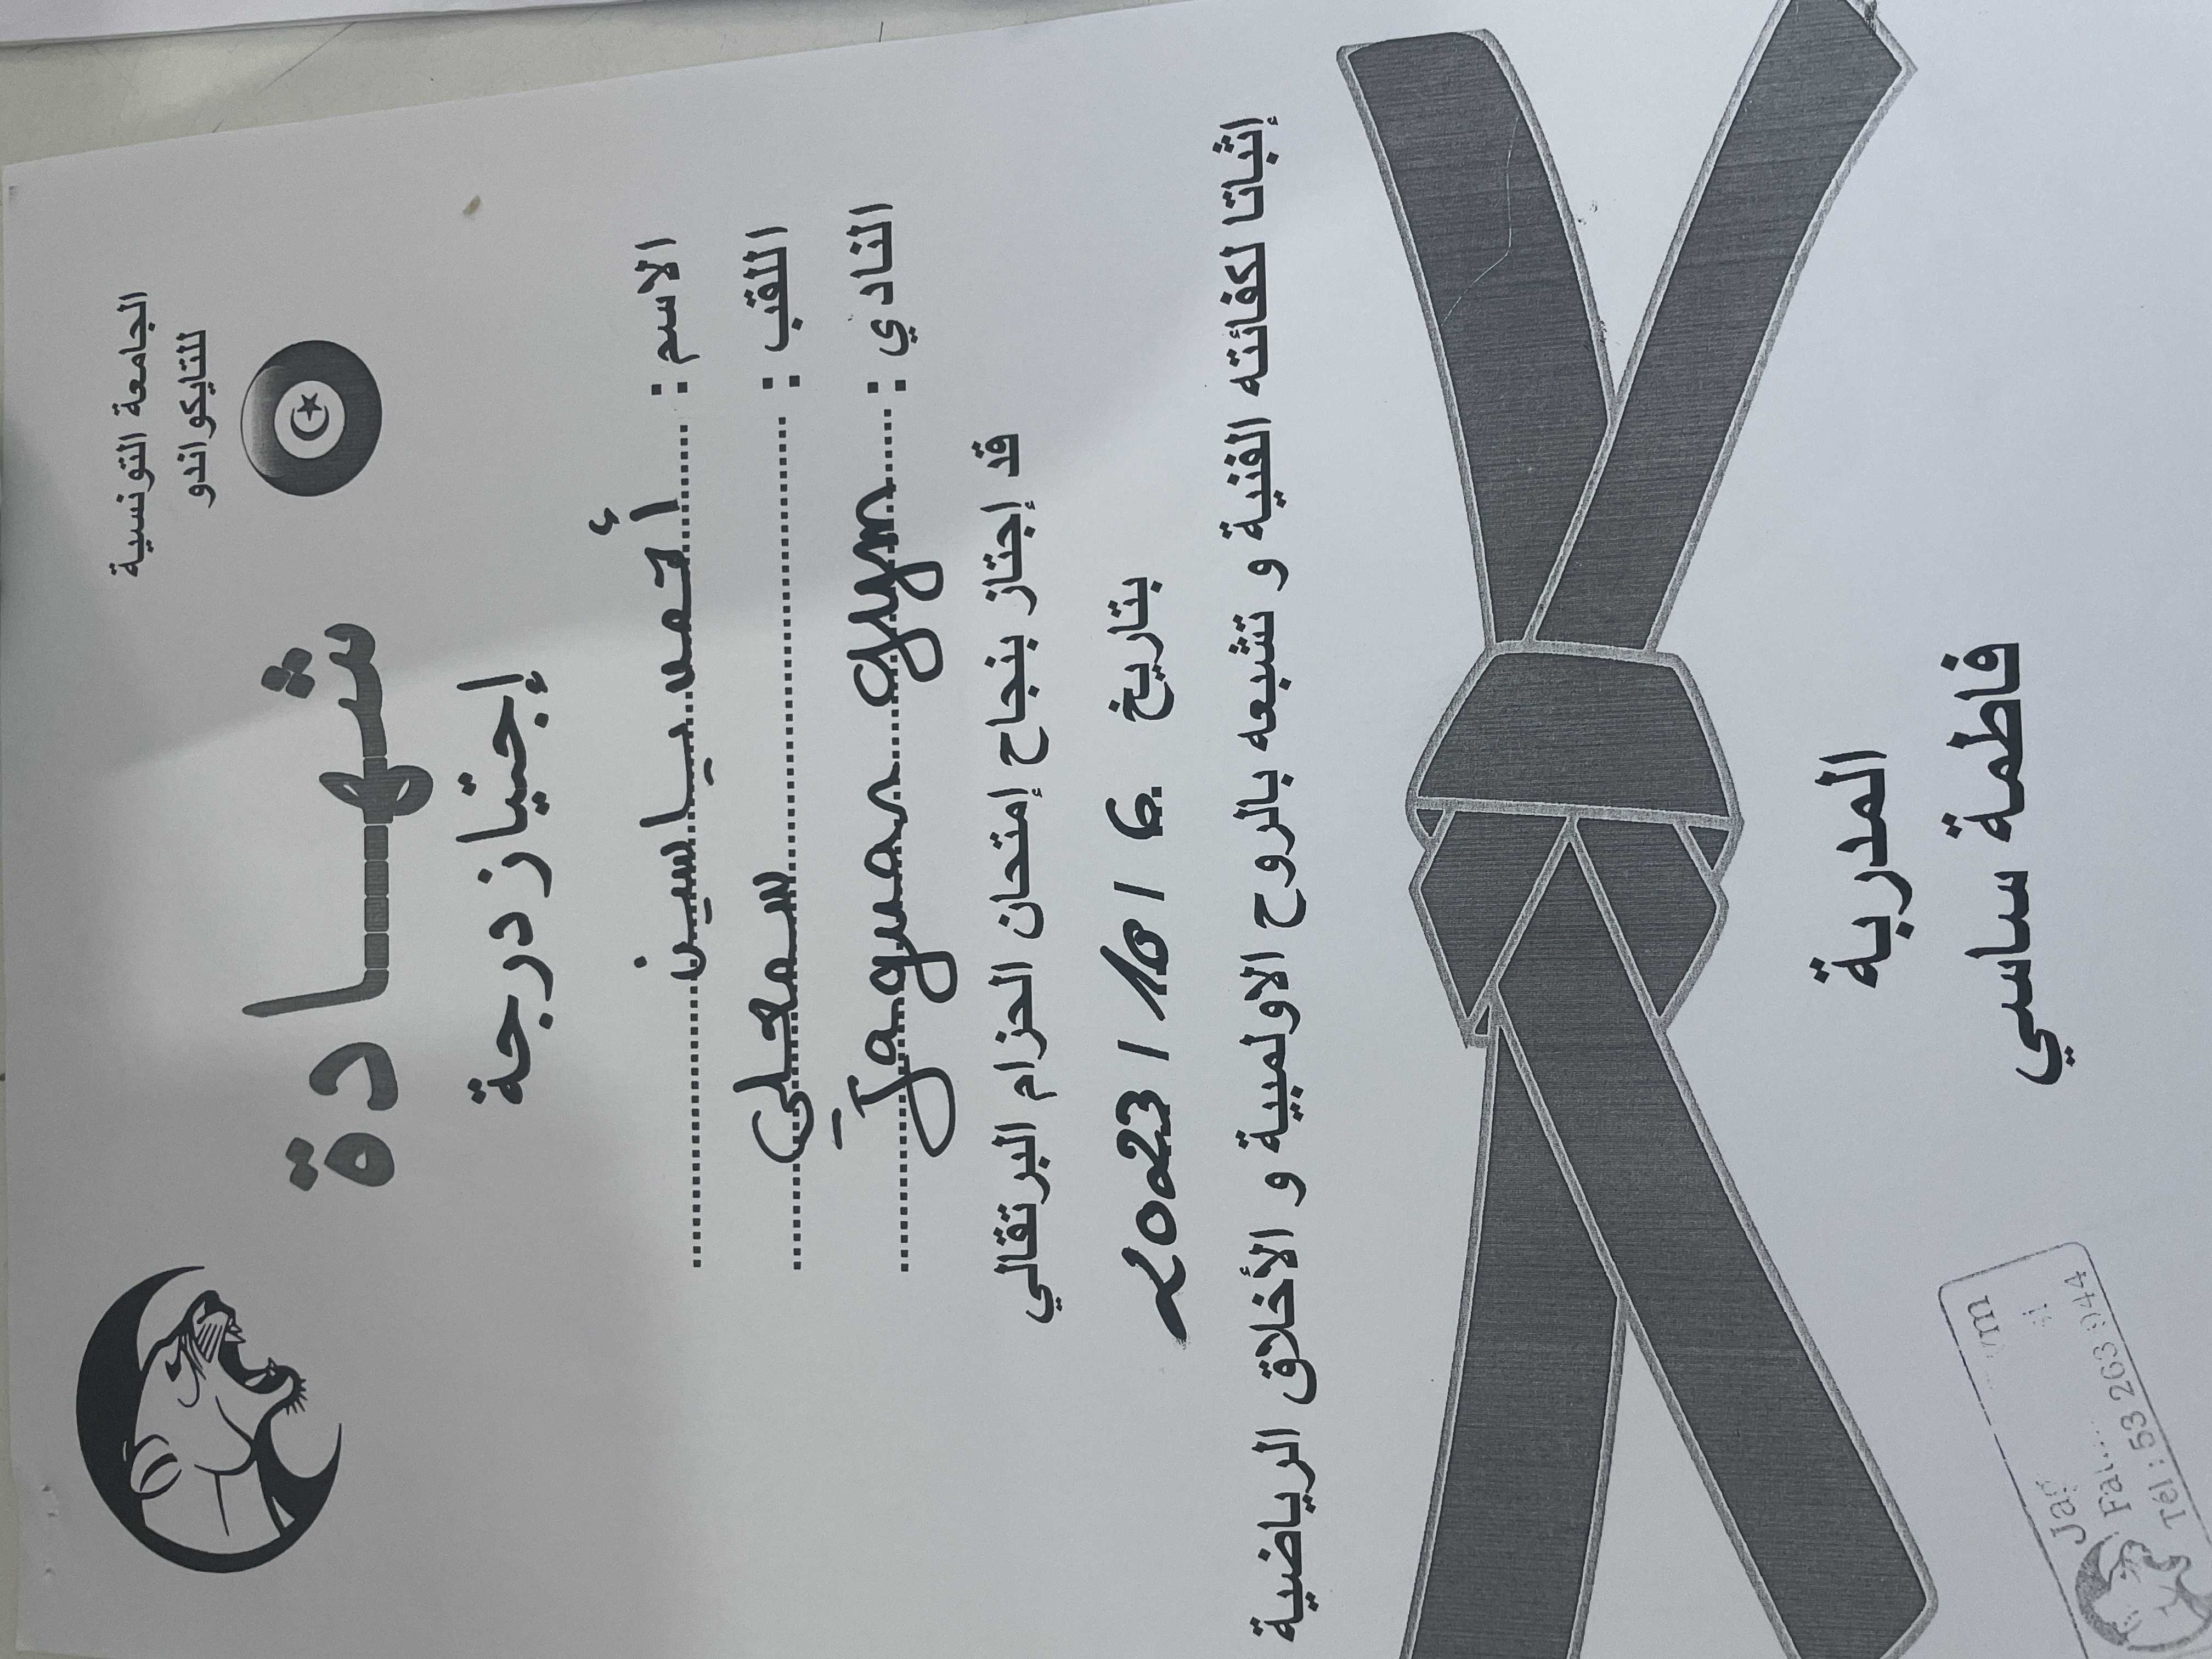 الجامعة التونسية
للتايكواندو
شهادة
إجتياز درجة
الاسم : أحمد ياسين
اللقب : سمحلي
النادي : Jaguar gym
قد إجتاز بنجاح إمتحان الحزام البرتقالي
بتاريخ 2023 / 10 / 6
إثباتا لكفائته الفنية و تشبعه بالروح الاولمبية و الأخلاق الرياضية
المدربة
فاطمة ساسي
Tél : 53 263 944